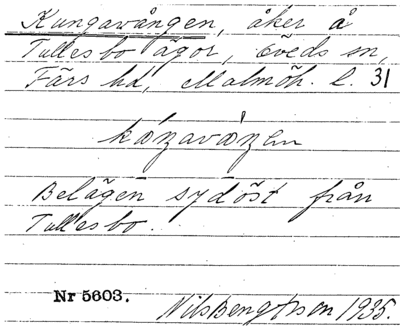 Kungavången, åker å
Tullesbo ägor, Öveds sn,
Färs hd, Malmöh. l. 31
Belägen sydöst från
Tullesbo.
Nr 5603.
Nils Bengtsson 1935.